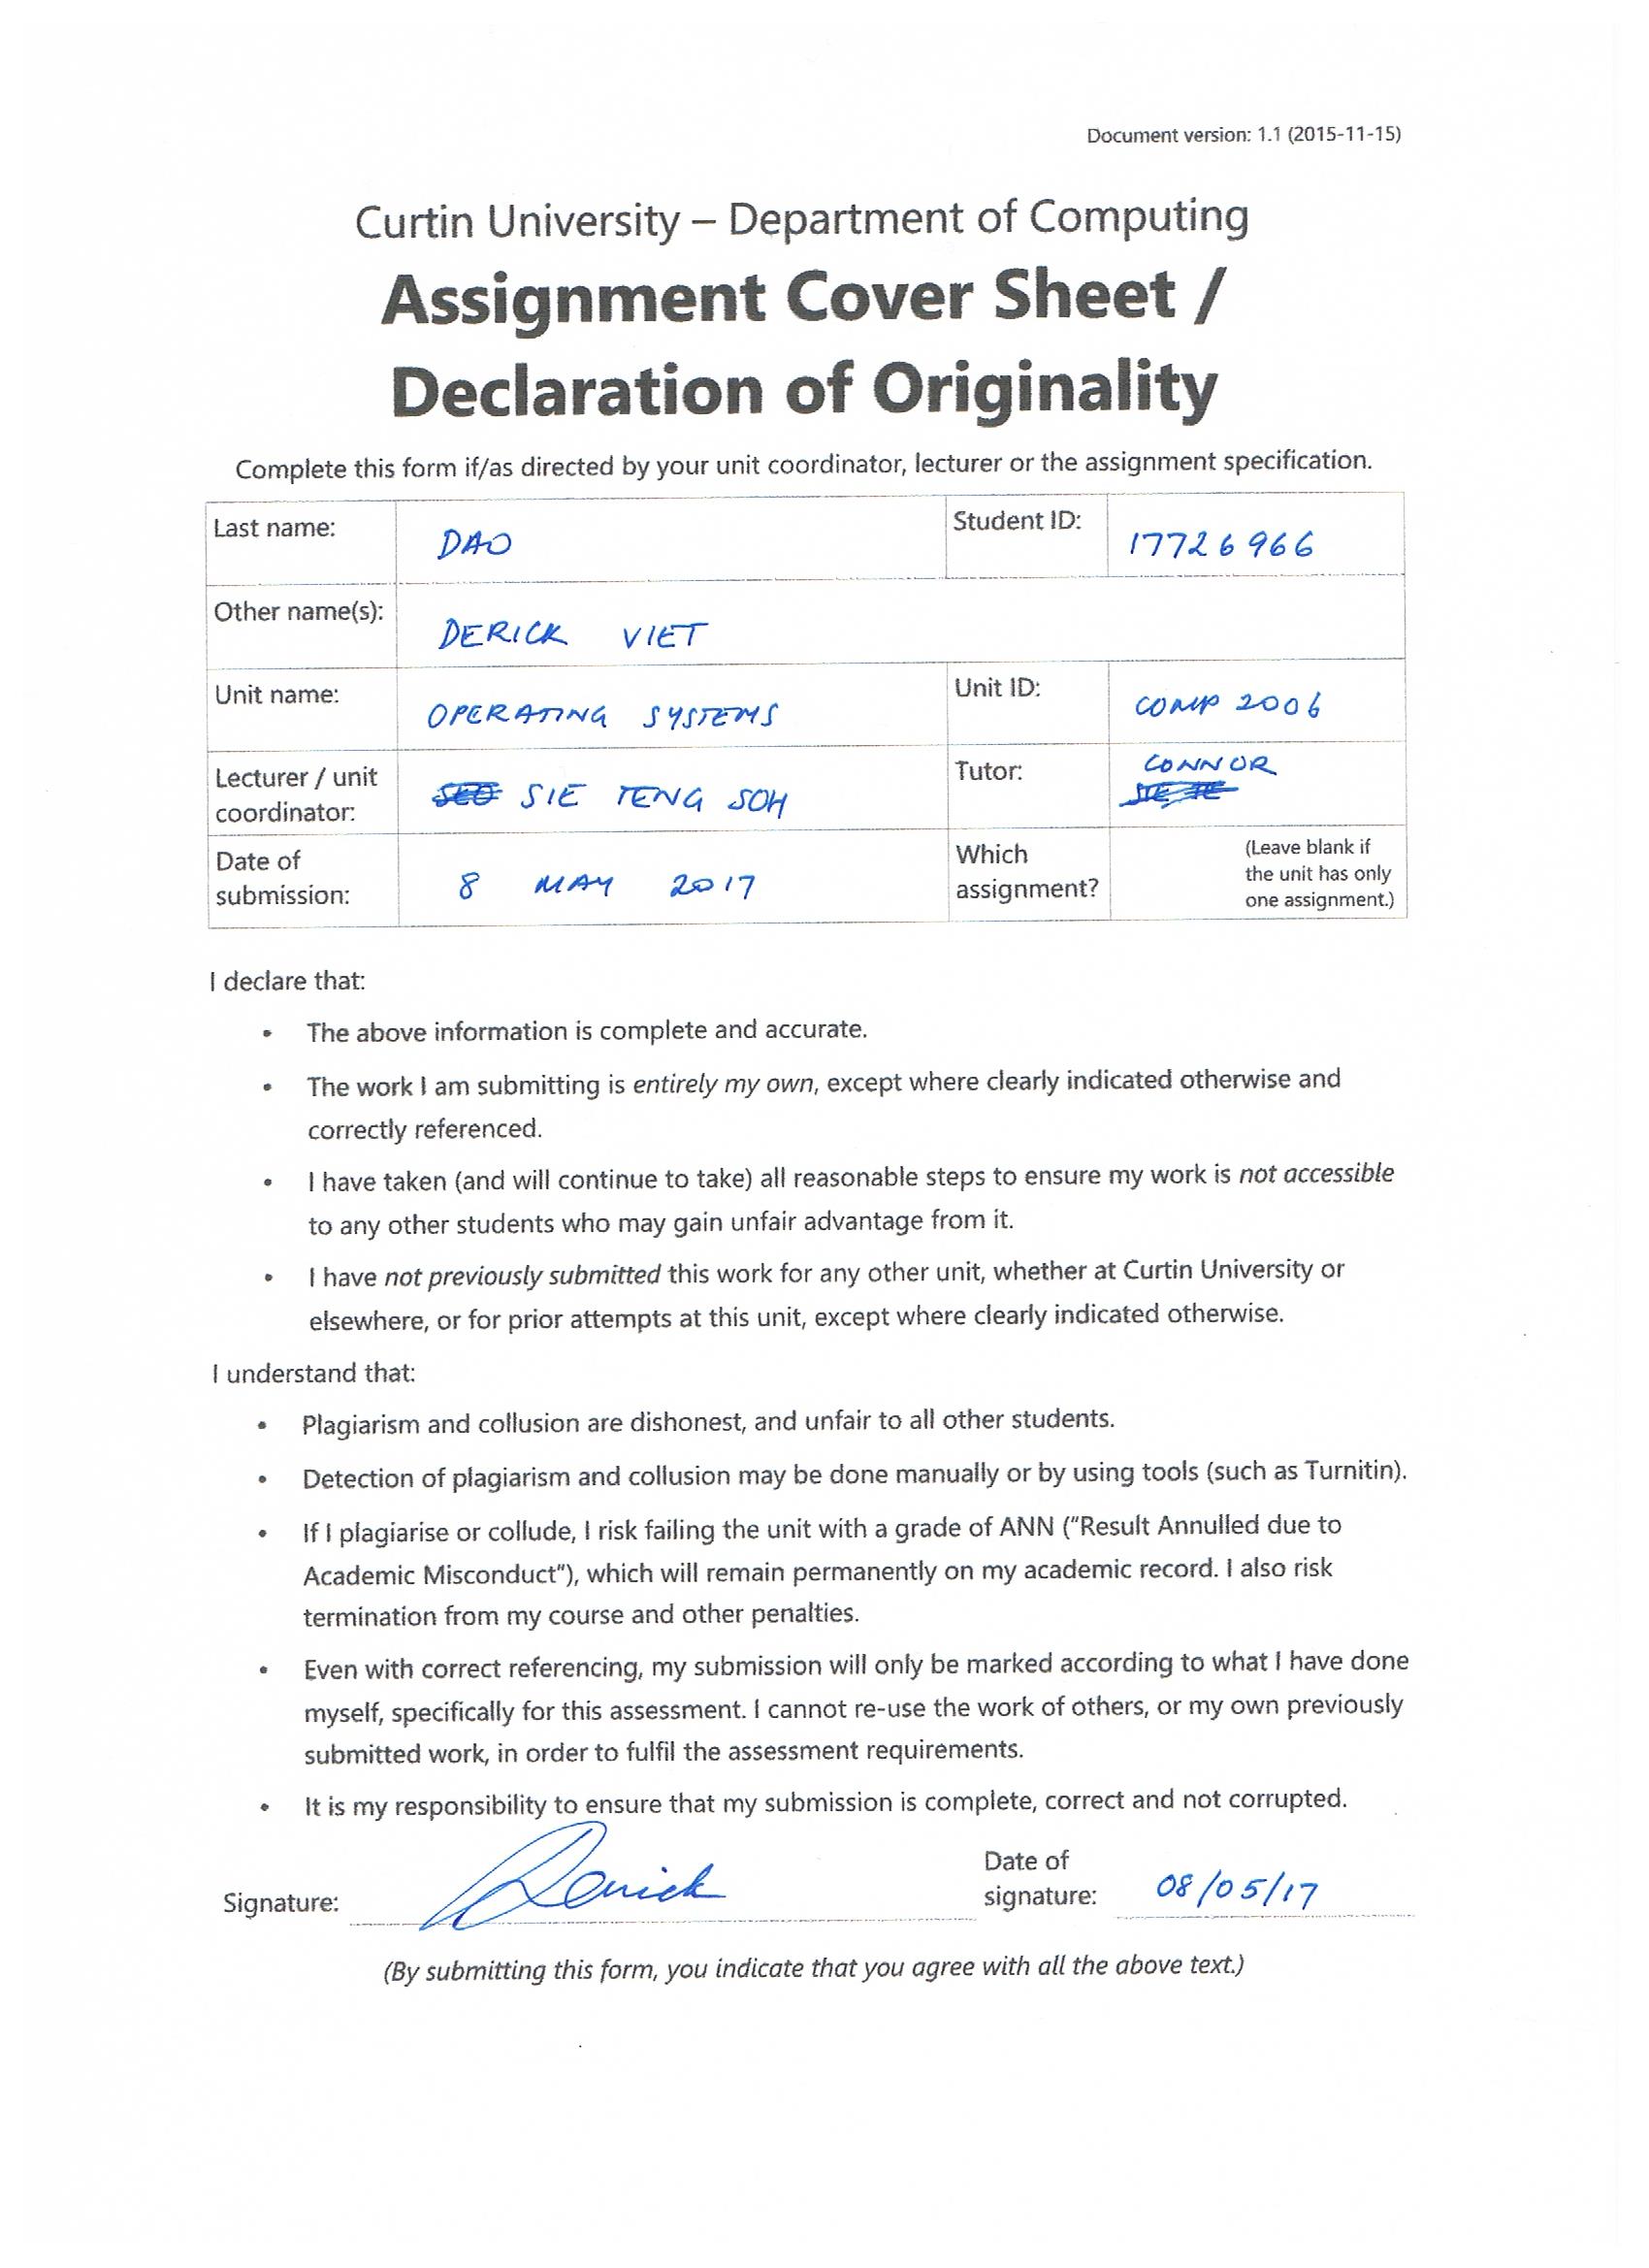 Document version: 1.1 (2015-11-15)
Curtin University – Department of Computing
Assignment Cover Sheet /
Declaration of Originality
Complete this form if/as directed by your unit coordinator, lecturer or the assignment specification.
Last name: DAO Student ID: 17726966
Other name(s): DERICK VIET
Unit name: OPERATING SYSTEMS Unit ID: COMP 2006
Lecturer / unit coordinator: SIE TENG SOH Tutor: CONNOR
Date of submission: 8 MAY 2017 Which assignment? (Leave blank if the unit has only one assignment.)
I declare that:
• The above information is complete and accurate.
• The work I am submitting is entirely my own, except where clearly indicated otherwise and
correctly referenced.
• I have taken (and will continue to take) all reasonable steps to ensure my work is not accessible
to any other students who may gain unfair advantage from it.
• I have not previously submitted this work for any other unit, whether at Curtin University or
elsewhere, or for prior attempts at this unit, except where clearly indicated otherwise.
I understand that:
• Plagiarism and collusion are dishonest, and unfair to all other students.
• Detection of plagiarism and collusion may be done manually or by using tools (such as Turnitin).
• If I plagiarise or collude, I risk failing the unit with a grade of ANN ("Result Annulled due to
Academic Misconduct"), which will remain permanently on my academic record. I also risk
termination from my course and other penalties.
• Even with correct referencing, my submission will only be marked according to what I have done
myself, specifically for this assessment. I cannot re-use the work of others, or my own previously
submitted work, in order to fulfil the assessment requirements.
• It is my responsibility to ensure that my submission is complete, correct and not corrupted.
Signature: Derick Date of signature: 08/05/17
(By submitting this form, you indicate that you agree with all the above text.)